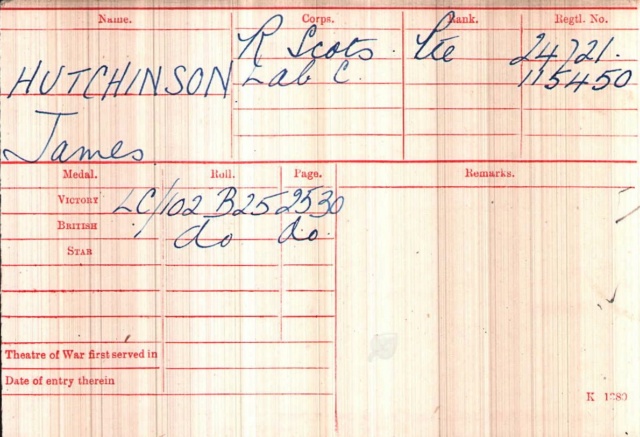 Name. Corps. Rank. Regtl. No.
R Scots. Pte 24721.
HUTCHINSON Lab C. 115450
James
Medal. Roll. Page. Remarks.
VICTORY LC/102 B25 2530
BRITISH do do.
STAR
Theatre of War first served in
Date of entry therein